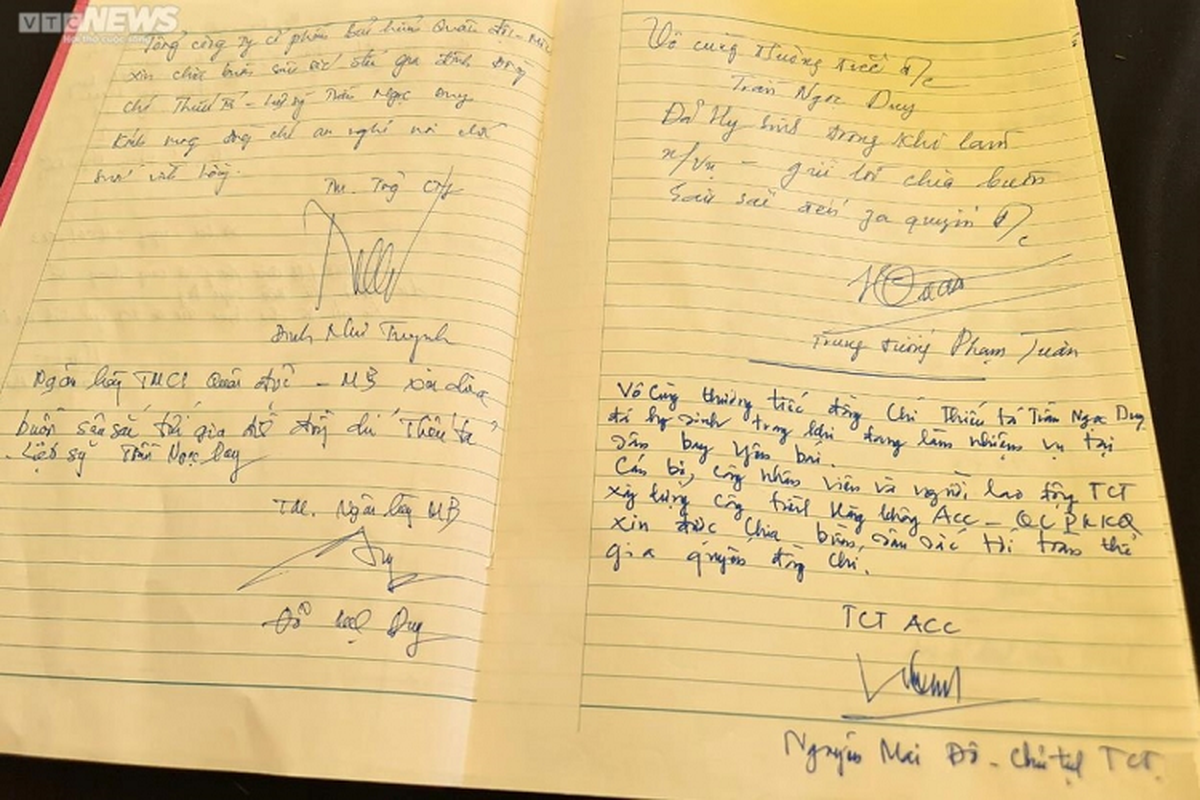 VTC NEWS
Hơi thở cuộc sống
Tổng công ty cổ phần bảo hiểm Quân đội - MIC
xin chia buồn sâu sắc đến gia đình đồng
chí Thiếu tá - Liệt sỹ Trần Ngọc Duy
Kính mong đồng chí an nghỉ nơi chốn
vĩnh hằng.
TM. Tổng Cty
Đinh Như Tuynh
Ngân hàng TMCP Quân đội - MB xin chia
buồn sâu sắc tới gia đồng chí Thiếu tá
Liệt sỹ Trần Ngọc Duy
TM. Ngân hàng MB
Duy
Vô cùng thương tiếc đ/c
Trần Ngọc Duy
Đã Hy sinh trong khi làm
n/vụ - gửi lời chia buồn
Sâu sắc đến gia quyến đ/c
Trung tướng Phạm Tuân
Vô Cùng thương tiếc đồng Chí Thiếu tá Trần Ngọc Duy
đã hy sinh trong khi đang làm nhiệm vụ tại
sân bay Yên Bái.
Cán bộ, công nhân viên và người lao động TCT
xây dựng công trình Hàng không ACC - QC PKKQ
xin được chia buồn sâu sắc tới toàn thể
gia quyến đồng chí.
TCT ACC
Nguyễn Mai Đô - Chủ tịch TCT.